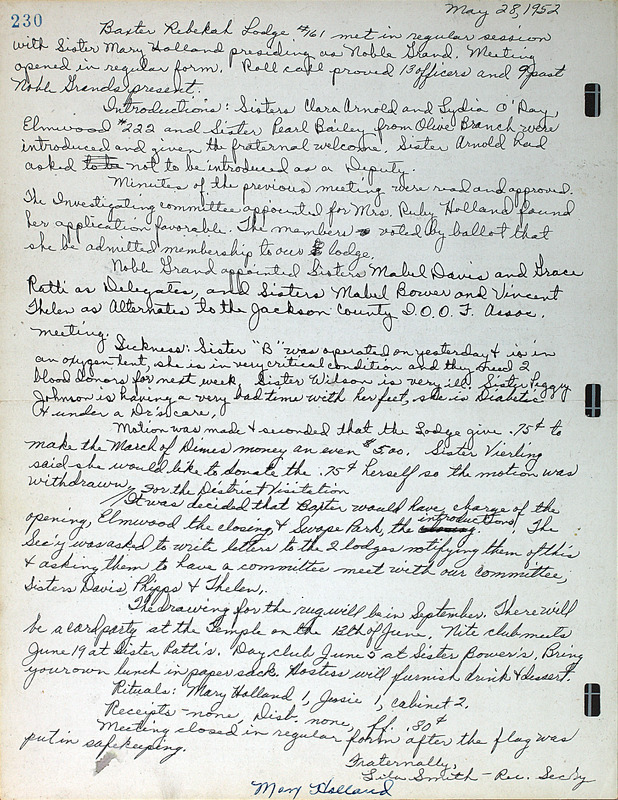 230
May 28, 1952
Baxter Rebekah Lodge #161 met in regular session
with Sister Mary Holland presiding as Noble Grand. Meeting
opened in regular form. Roll call proved 13 officers and 9 past
Noble Grands present.
Introductions: Sisters Clara Arnold and Lydia O'Day,
Elmwood #222 and Sister Pearl Bailey from Olive Branch were
introduced and given the fraternal welcome. Sister Arnold had
asked to be not to be introduced as a Deputy.
Minutes of the previous meeting were read and approved.
The Investigating committee appointed for Mrs. Ruby Holland found
her application favorable. The members voted by ballot that
she be admitted membership to our lodge.
Noble Grand appointed Sisters Mabel Davis and Grace
Ratti as Delegates, and Sisters Mabel Bower and Vincent
Thelen as Alternates to the Jackson County I.O.O.F. Assoc.
meeting.
Sickness: Sister "B" was operated on yesterday & is in
an oxygen tent, she is in very critical condition and they need 2
blood donors for next week. Sister Wilson is very ill. Sister Peggy
Johnson is having a very bad time with her feet, she is Diabetic
& under a Dr's care.
Motion was made & seconded that the Lodge give .75¢ to
make the March of Dimes money an even $5.00. Sister Vierling
said she would like to donate the .75¢ herself so the motion was
withdrawn. For the District Visitation
It was decided that Baxter would have charge of the
opening, Elmwood the closing & Swope Park, the closing introductions. The
Sec'y was asked to write letters to the 2 lodges notifying them of this
& asking them to have a committee meet with our committee,
Sisters Davis, Phipps & Thelen,.
The drawing for the rug will be in September. There will
be a card party at the Temple on the 12th of June. Nite club meets
June 19 at Sister Ratti's. Day club June 5 at Sister Bower's. Bring
your own lunch in paper sack. Hostess will furnish drink & dessert.
Rituals: Mary Holland 1, Josie 1, cabinet 2.
Receipts - none, Disb. none, ff. .80¢
Meeting closed in regular form after the flag was
put in safekeeping.
Fraternally,
Lulu Smith - Rec. Sec'y
Mary Holland